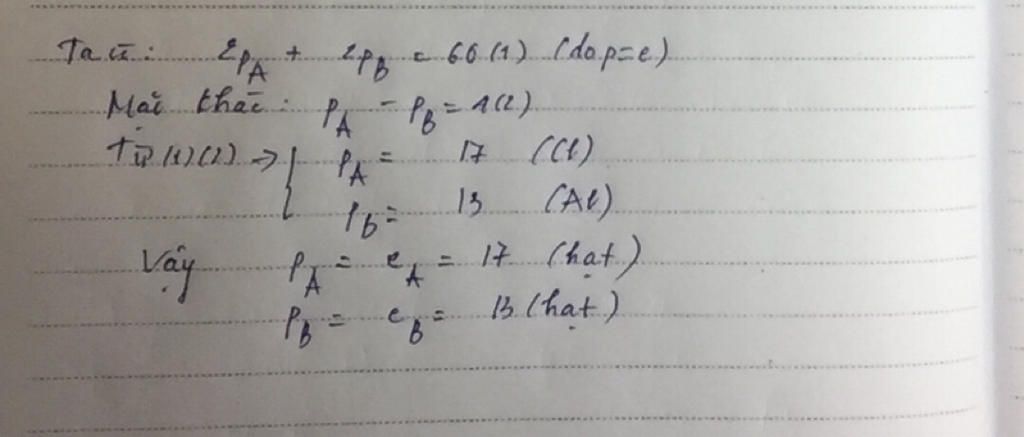 Ta có: 2pA + 2pB = 60 (1) (do p=e)
Mặt khác: pA - pB = 4 (2)
Từ (1) (2) => { pA = 17 (Cl)
pB = 13 (Al)
Vậy pA = eA = 17 (hạt)
pB = eB = 13 (hạt)